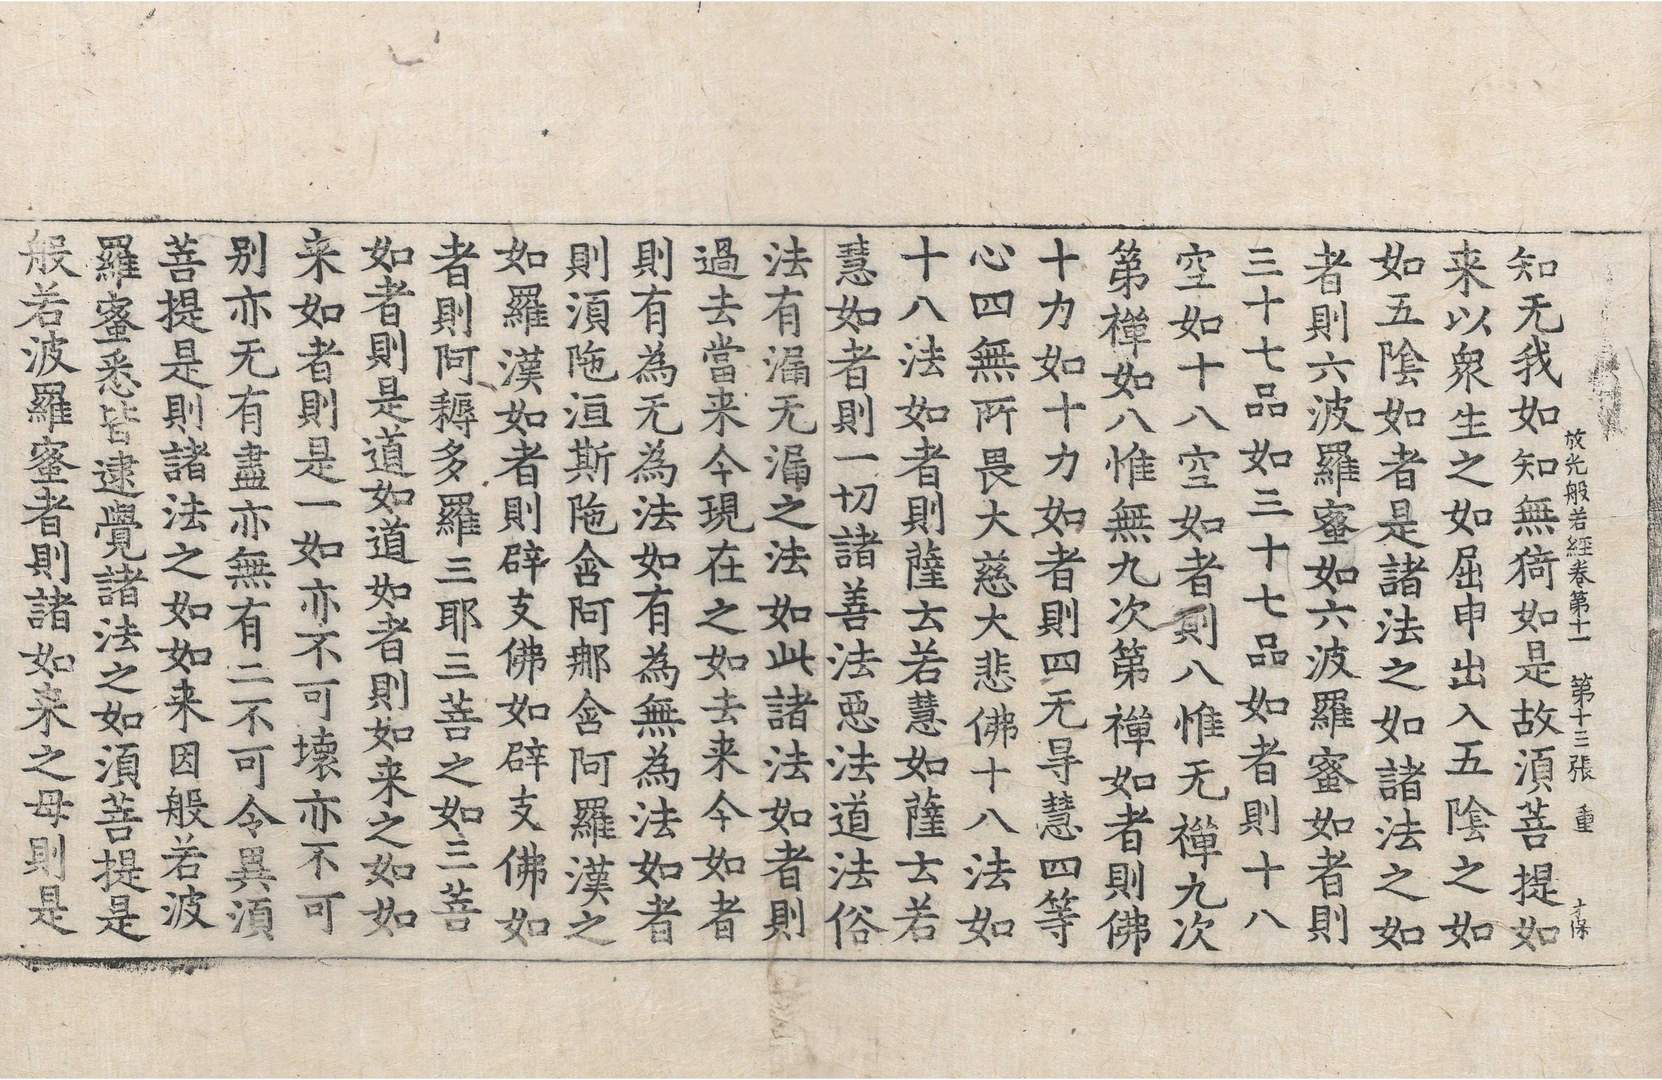 放光般若經卷第十一 第十三張 重
知无我如知無猗如是故湏菩提如
来以衆生之如屈申出入五陰之如
如五陰如者是諸法之如諸法之如
者則六波羅蜜如六波羅蜜如者則
三十七品如三十七品如者則十八
空如十八空如者則八惟无禪九次
第禪如八惟無九次第禪如者則佛
十力如十力如者則四无㝵慧四等
心四無所畏大慈大悲佛十八法如
十八法如者則薩云若慧如薩云若
慧如者則一切諸善法惡法道法俗
法有漏无漏之法如此諸法如者則
過去當来今現在之如去来今如者
則有為无為法如有為無為法如者
則湏陁洹斯陁含阿那含阿羅漢之
如羅漢如者則辟支佛如辟支佛如
者則阿耨多羅三耶三菩之如三菩
如者則是道如道如者則如来之如如
来如者則是一如亦不可壞亦不可
别亦无有盡亦無有二不可令異湏
菩提是則諸法之如如来因般若波
羅蜜悉皆逮覺諸法之如湏菩提是
般若波羅蜜者則諸如来之母則是